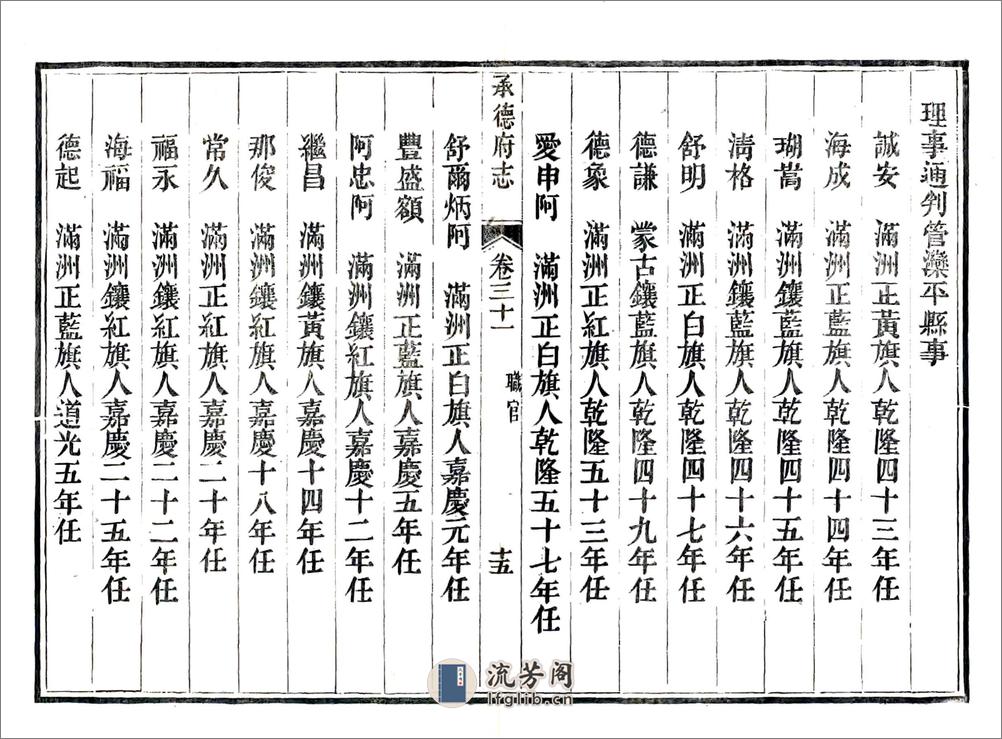 理事通判管灤平縣事
誠安　滿洲正黃旗人乾隆四十三年任
海成　滿洲正藍旗人乾隆四十四年任
瑚嵩　滿洲鑲藍旗人乾隆四十五年任
清格　滿洲鑲藍旗人乾隆四十六年任
舒明　滿洲正白旗人乾隆四十七年任
德謙　蒙古鑲藍旗人乾隆四十九年任
德象　滿洲正紅旗人乾隆五十三年任
愛申阿　滿洲正白旗人乾隆五十七年任
承德府志　卷三十一　職官　十五
舒爾炳阿　滿洲正白旗人嘉慶元年任
豐盛額　滿洲正藍旗人嘉慶五年任
阿忠阿　滿洲鑲紅旗人嘉慶十二年任
繼昌　滿洲鑲黃旗人嘉慶十四年任
那俊　滿洲鑲紅旗人嘉慶十八年任
常久　滿洲正紅旗人嘉慶二十年任
福永　滿洲鑲紅旗人嘉慶二十二年任
海福　滿洲鑲黃旗人嘉慶二十五年任
德起　滿洲正藍旗人道光五年任
流芳阁
lfglib.cn